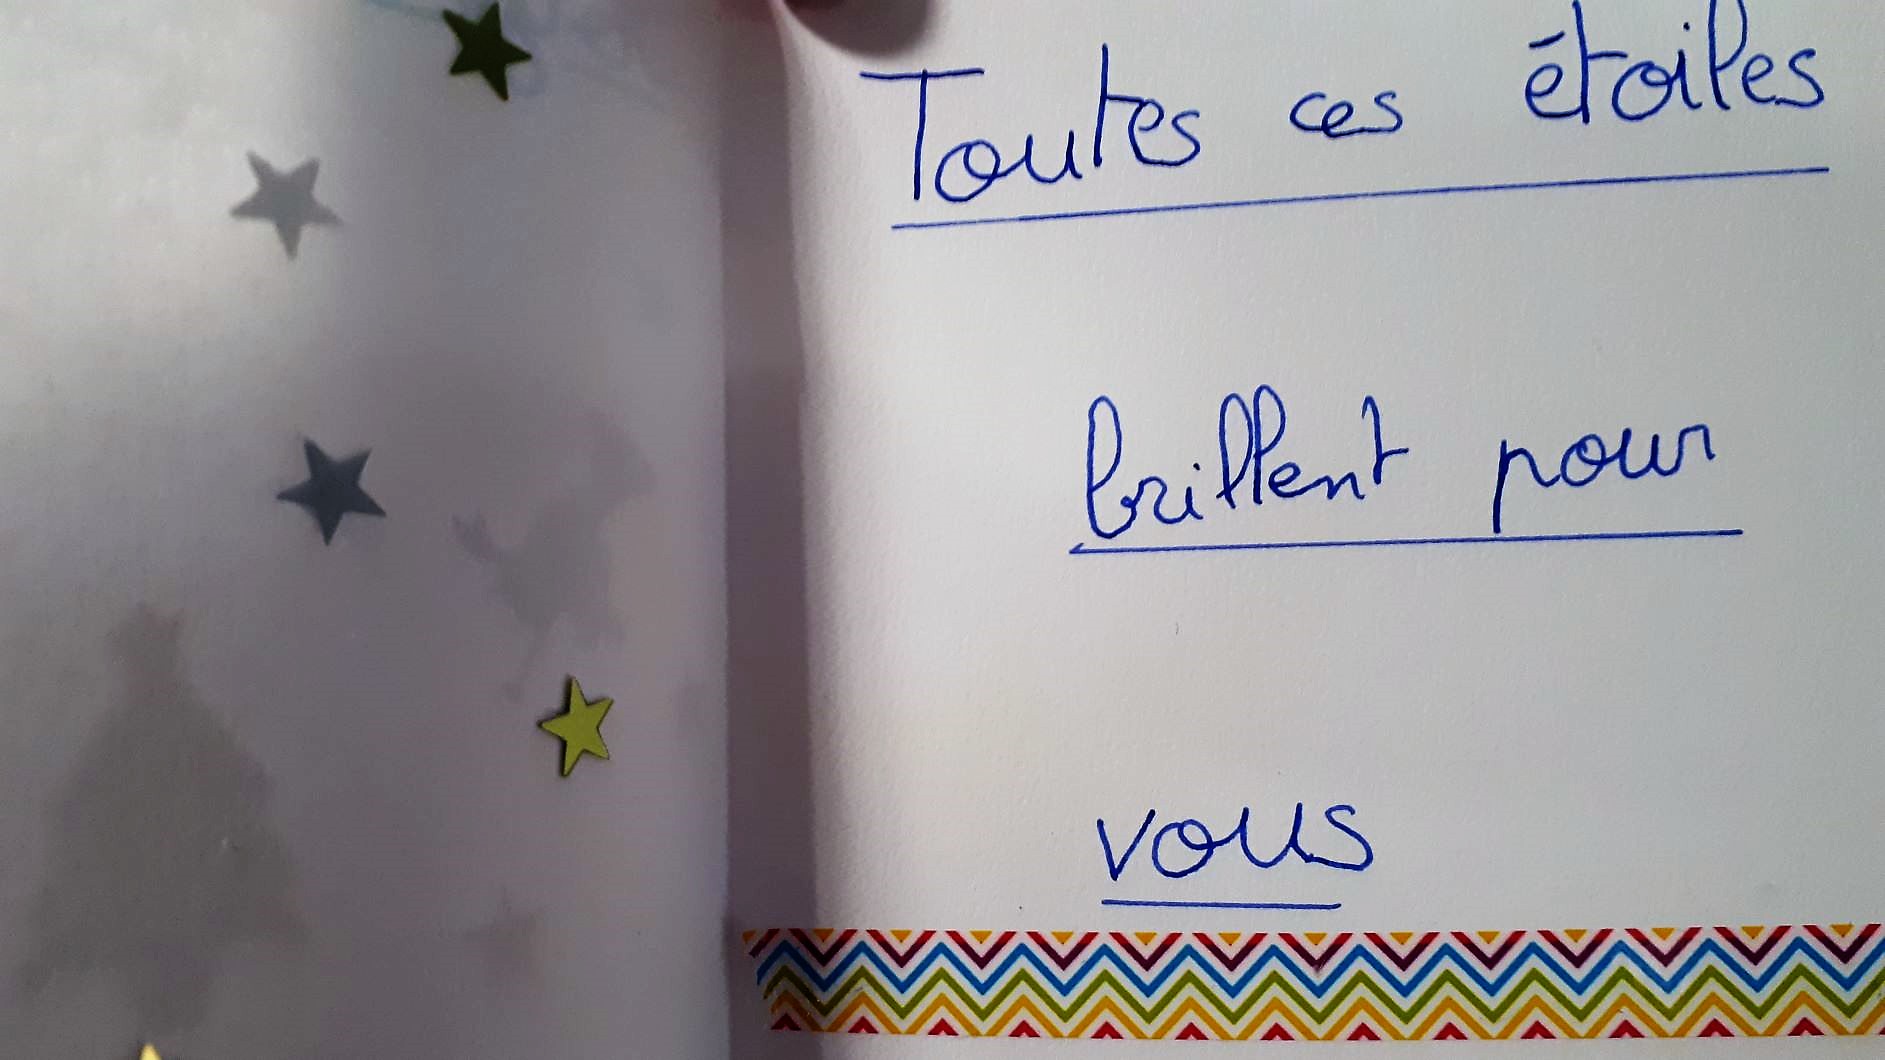 Toutes ces étoiles
brillent pour
vous